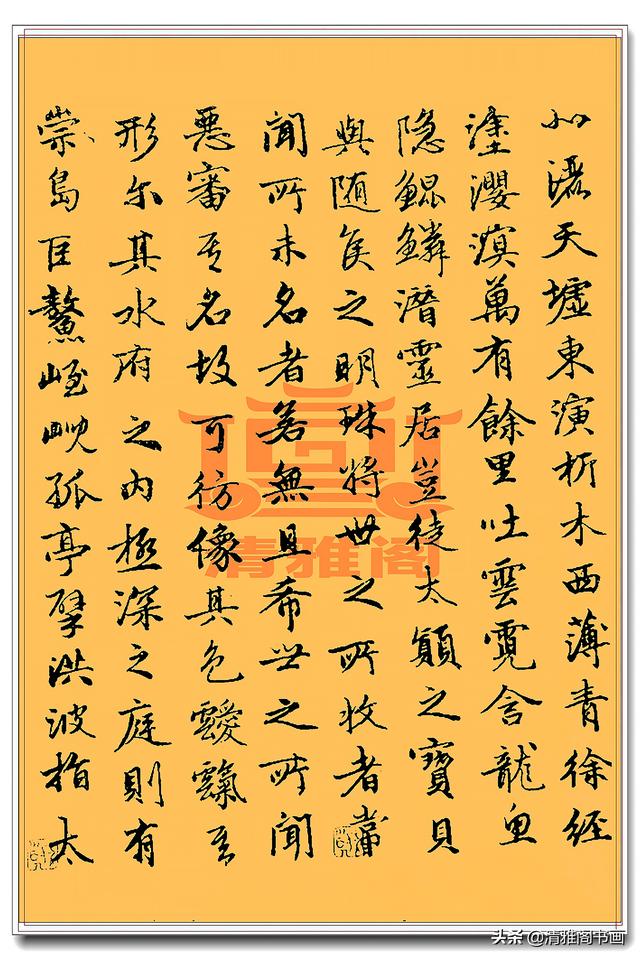 北灑天墟東演析木西薄青徐經
塗瀴溟萬有餘里吐雲霓含龍魚
隐鯤鱗潛靈居豈徒太顛之寶貝
與随侯之明珠將世之所收者常
聞所未名者若無且希世之所聞
惡審其名故可彷像其色靉霼其
形尔其水府之内極深之庭則有
崇島巨鼇峌峴孤亭擘洪波指太
清雅阁
头条 @清雅阁书画